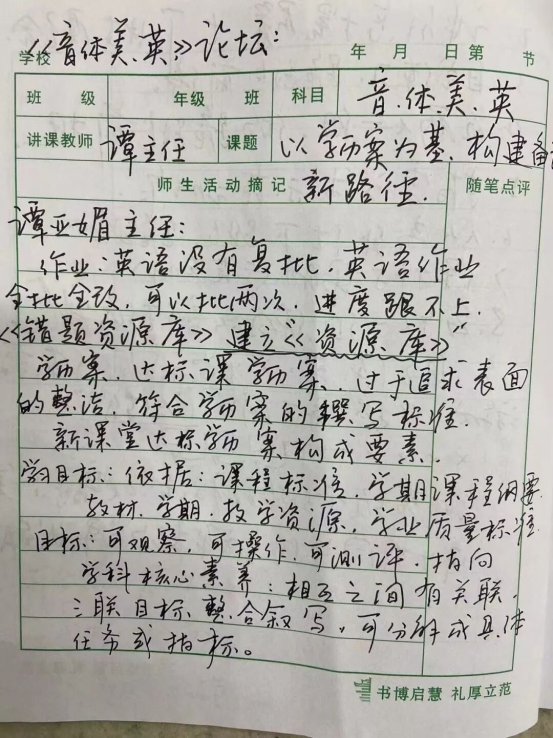 《音体美、英》论坛：
学校 年 月 日 第 节
班 级 年级 班 科目 音、体、美、英
讲课教师 谭主任 课题 以学历案为基、构建备
师生活动摘记 新路径. 随笔点评
谭亚媚主任：
作业：英语没有复批，英语作业
全批全改，可以批两次，进度跟不上.
《错题资源库》建立“《资源库》”
学历案、达标课 学历案，过于追求表面
的整洁，符合学历案的撰写标准.
新课堂达标学历案构成要素.
学习目标：依据：课程标准、学期课程纲要
教材、学期、教学资源，学业质量标准
目标：可观察，可操作，可测评，指向
学科核心素养：相互之间有关联.
三联目标整合叙写，可分解成具体
任务或指标。
书博启慧 礼厚立范